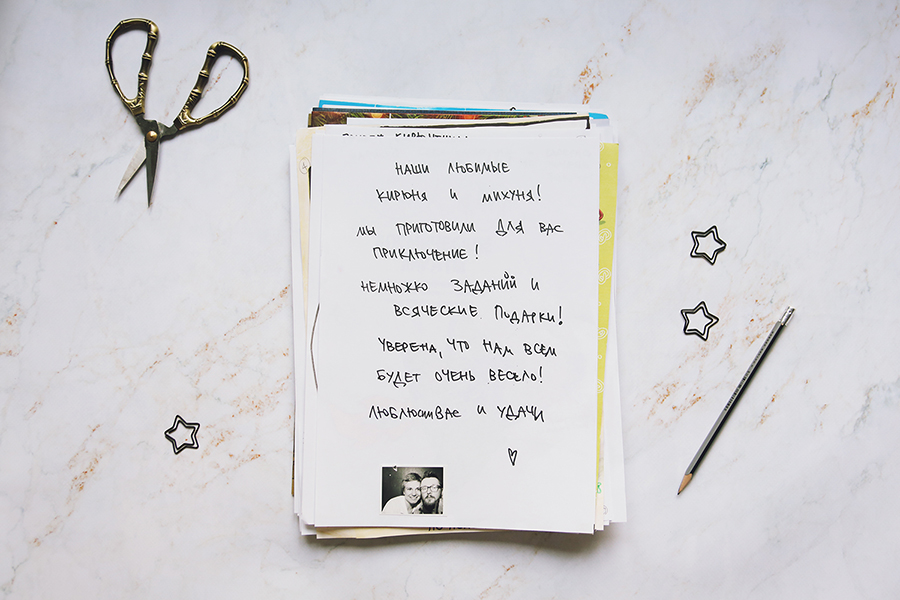 НАШИ ЛЮБИМЫЕ
КИРЮНЯ И МИХУНЯ!
МЫ ПРИГОТОВИЛИ ДЛЯ ВАС
ПРИКЛЮЧЕНИЕ!
НЕМНОЖКО ЗАДАНИЙ И
ВСЯЧЕСКИЕ ПОДАРКИ!
УВЕРЕНА, ЧТО НАМ ВСЕМ
БУДЕТ ОЧЕНЬ ВЕСЕЛО!
ЛЮБЛЮСИМВАС И УДАЧИ